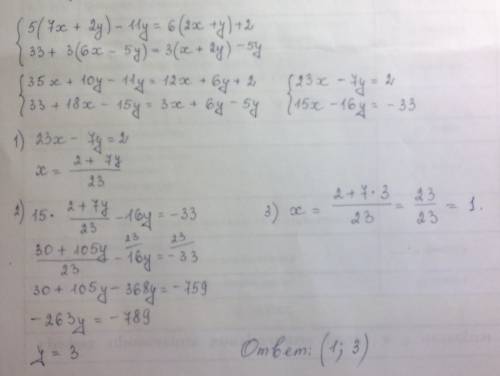 { 5(7x + 2y) - 11y = 6(2x + y) + 2
33 + 3(6x - 5y) = 3(x + 2y) - 5y
{ 35x + 10y - 11y = 12x + 6y + 2 { 23x - 7y = 2
33 + 18x - 15y = 3x + 6y - 5y 15x - 16y = -33
1) 23x - 7y = 2
x = (2 + 7y)/23
2) 15 · (2 + 7y)/23 - 16y = -33
(30 + 105y)/23 - 16y /23 = -33 /23
30 + 105y - 368y = -759
-263y = -789
y = 3
3) x = (2 + 7·3)/23 = 23/23 = 1.
Ответ: (1; 3)